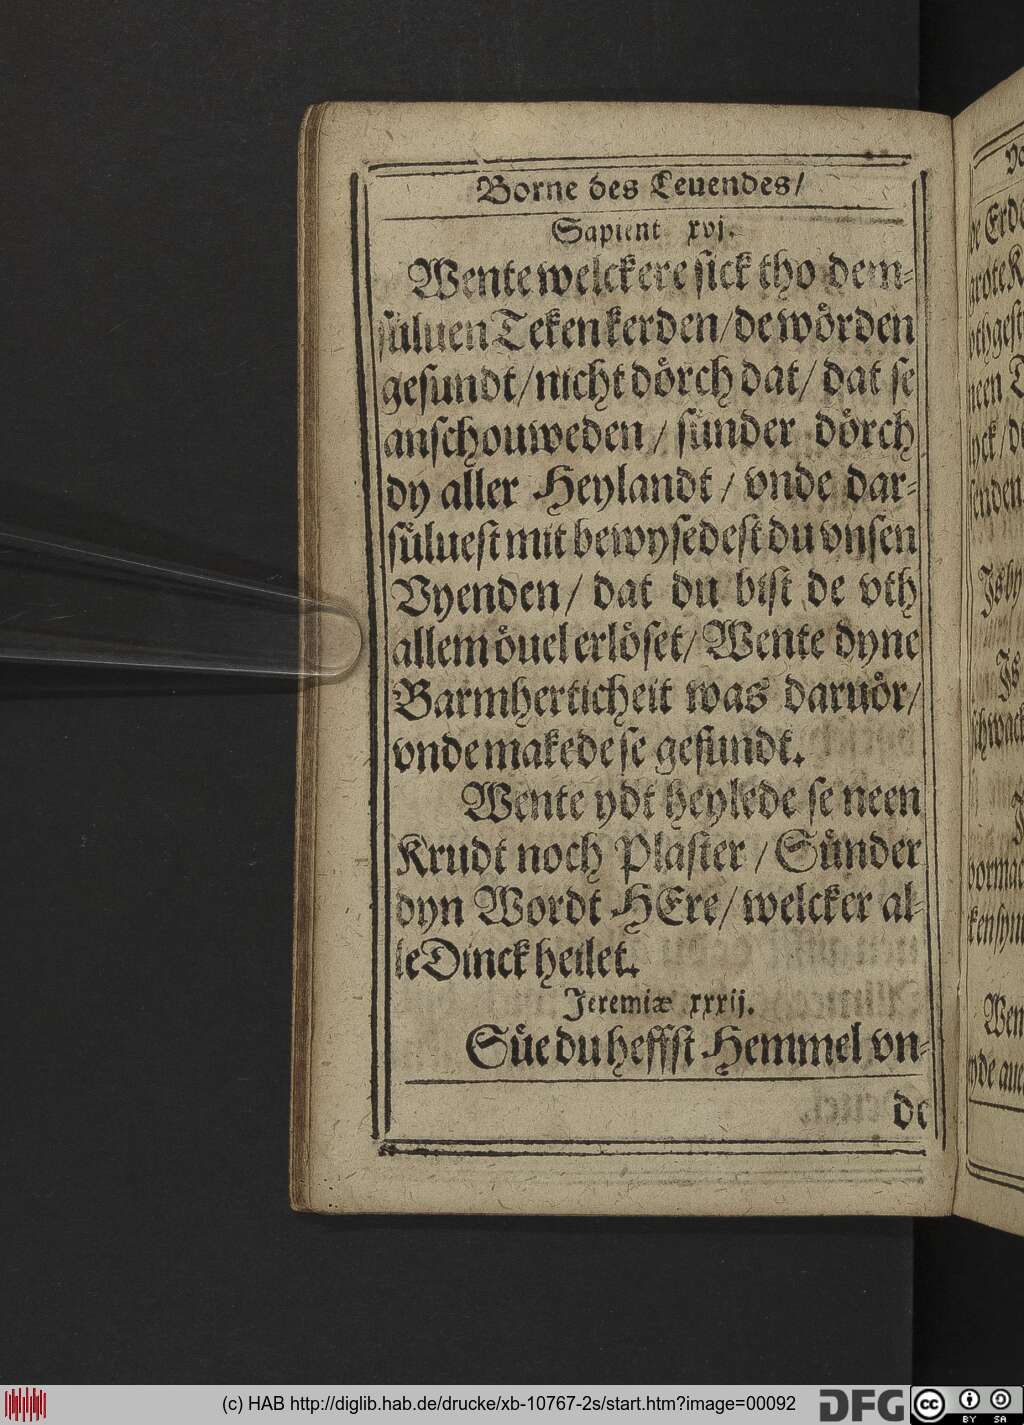 Borne des Leuendes/
Sapient xvj.
Wente welckere sick tho dem-
süluen Teken kerden/ de wörden
gesundt/ nicht dörch dat/ dat se
anschouweden/ sünder dörch
dy aller Heylandt/ vnde dar-
süluest mit bewysedest du vnsen
Vyenden/ dat du bist de vth
allem öuel erlöset/ Wente dyne
Barmherticheit was daruör/
vnde makede se gesundt.
Wente ydt heylede se neen
Krudt noch Plaster/ Sünder
dyn Wordt HEre/ welcker al-
le Dinck heilet.
Jeremiæ xxxij.
Süe du heffst Hemmel vn-
de
(c) HAB http://diglib.hab.de/drucke/xb-10767-2s/start.htm?image=00092
DFG
cc
BY SA